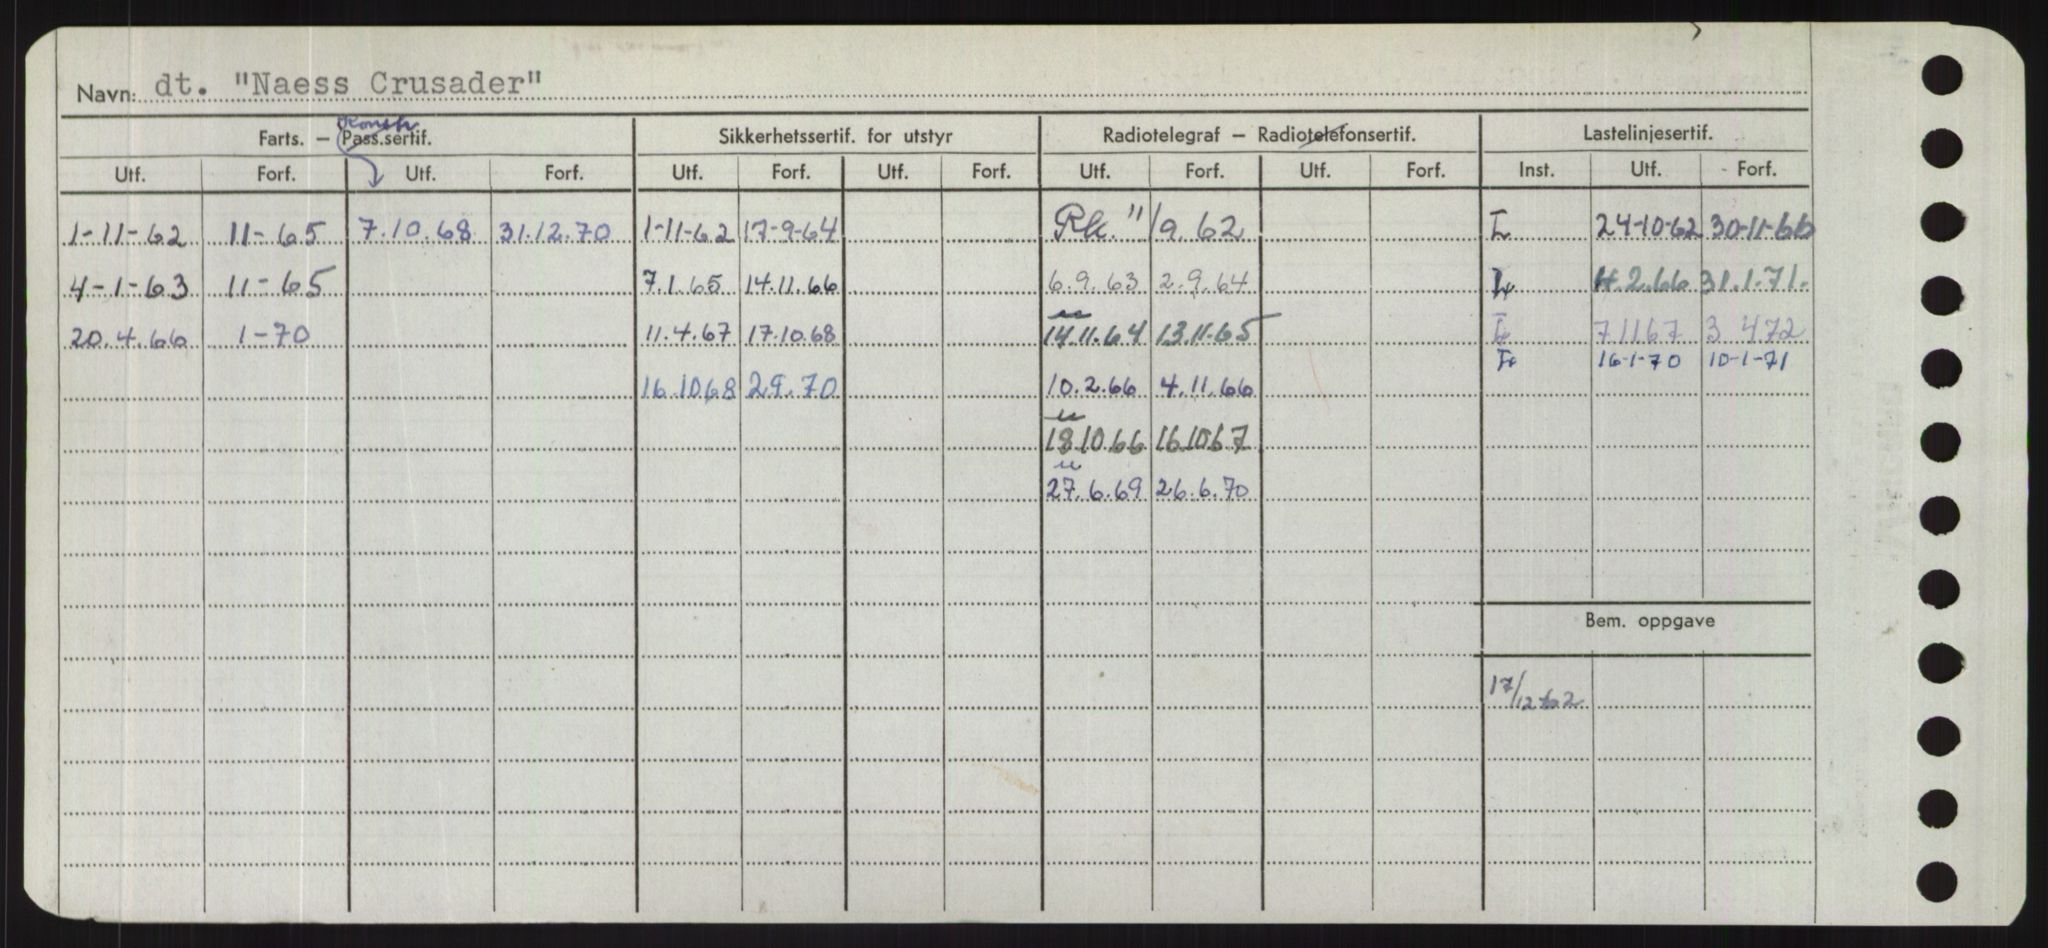 Navn: dt. "Naess Crusader"
Konstr
Farts. — Pass.sertif. Sikkerhetssertif. for utstyr Radiotelegraf — Radiotelefonsertif. Lastelinjesertif.
Utf. Forf. Utf. Forf. Utf. Forf. Utf. Forf. Utf. Forf. Utf. Forf. Inst. Utf. Forf.
1-11-62 11-65 7.10.68 31.12.70 1-11-62 17-9-64 Rk. "/9.62 L 24-10-62 30-11-66
4-1-63 11-65 7.1.65 14.11.66 6.9.63 2.9.64 L 4.2.66 31.1.71.
20.4.66 1-70 11.4.67 17.10.68 14.11.64 13.11.65 L 7 11 67 3 4 72
L 16-1-70 10-1-71
16.10 68 2.9.70 10.2.66 4.11.66
18.10.66 16.10.67
27.6.69 26.6.70
Bem. oppgave
17/12-62